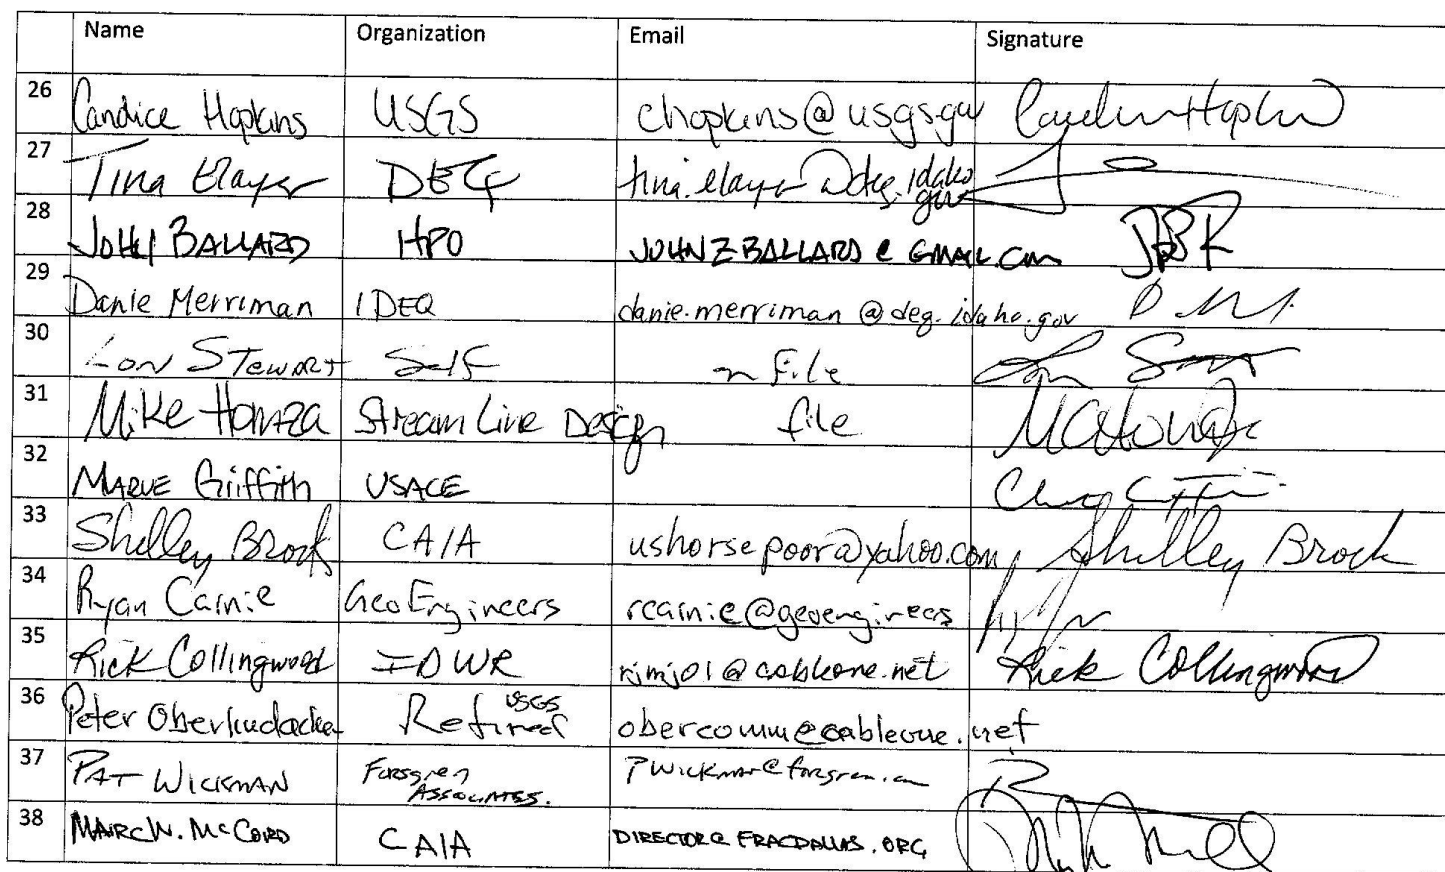 Name Organization Email Signature
26 Candice Hopkins USGS chopkins@usgs.gov Candice Hopkins
27 Tina Elayer DEQ tina.elayer@deq.idaho.gov
28 JOHN BALLARD HPO JOHNZBALLARD@GMAIL.COM
29 Danie Merriman IDEQ danie.merriman@deq.idaho.gov D M
30 Lon Stewart Self on File
31 Mike Homza Stream Line Design file
32 Griffith USACE
33 Shelley Brock CAIA ushorsepoor@yahoo.com Shelley Brock
34 Ryan Carnie GeoEngineers rcarnie@geoengineers
35 Rick Collingwood IDWR rjmj01@cableone.net Rick Collingwood
36 Peter Oberlindacher Retired USGS obercomm@cableone.net
37 PAT WICKMAN Forsgren ASSOCIATES. PWickman@forsgren.com
38 MARC W. McCORD CAIA DIRECTOR@FRACDALLAS.ORG